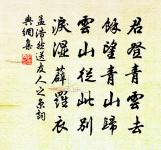 君登青雲去
餘望青山歸
雲山從此別
淚濕薜蘿衣
孟浩然送友人之京詞
典網集